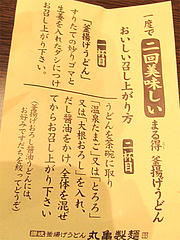 一度で二回美味しい まる得 釜揚げうどん
おいしい召し上がり方
一杯目
「釜揚げうどん」
すりたての炒りゴマと
生姜を入れたダシにつけて
お召し上がり下さい。
二杯目
うどんを茶碗に取り
「温泉たまご」又は「とろろ」
又は「大根おろし」を入れ、
だし醤油をかけ、全体を混ぜ
てからお召し上がり下さい。
(釜揚げおろし醤油うどんには、
お好みですだちを絞ってどうぞ)
讃岐 釜揚げうどん 丸亀製麺